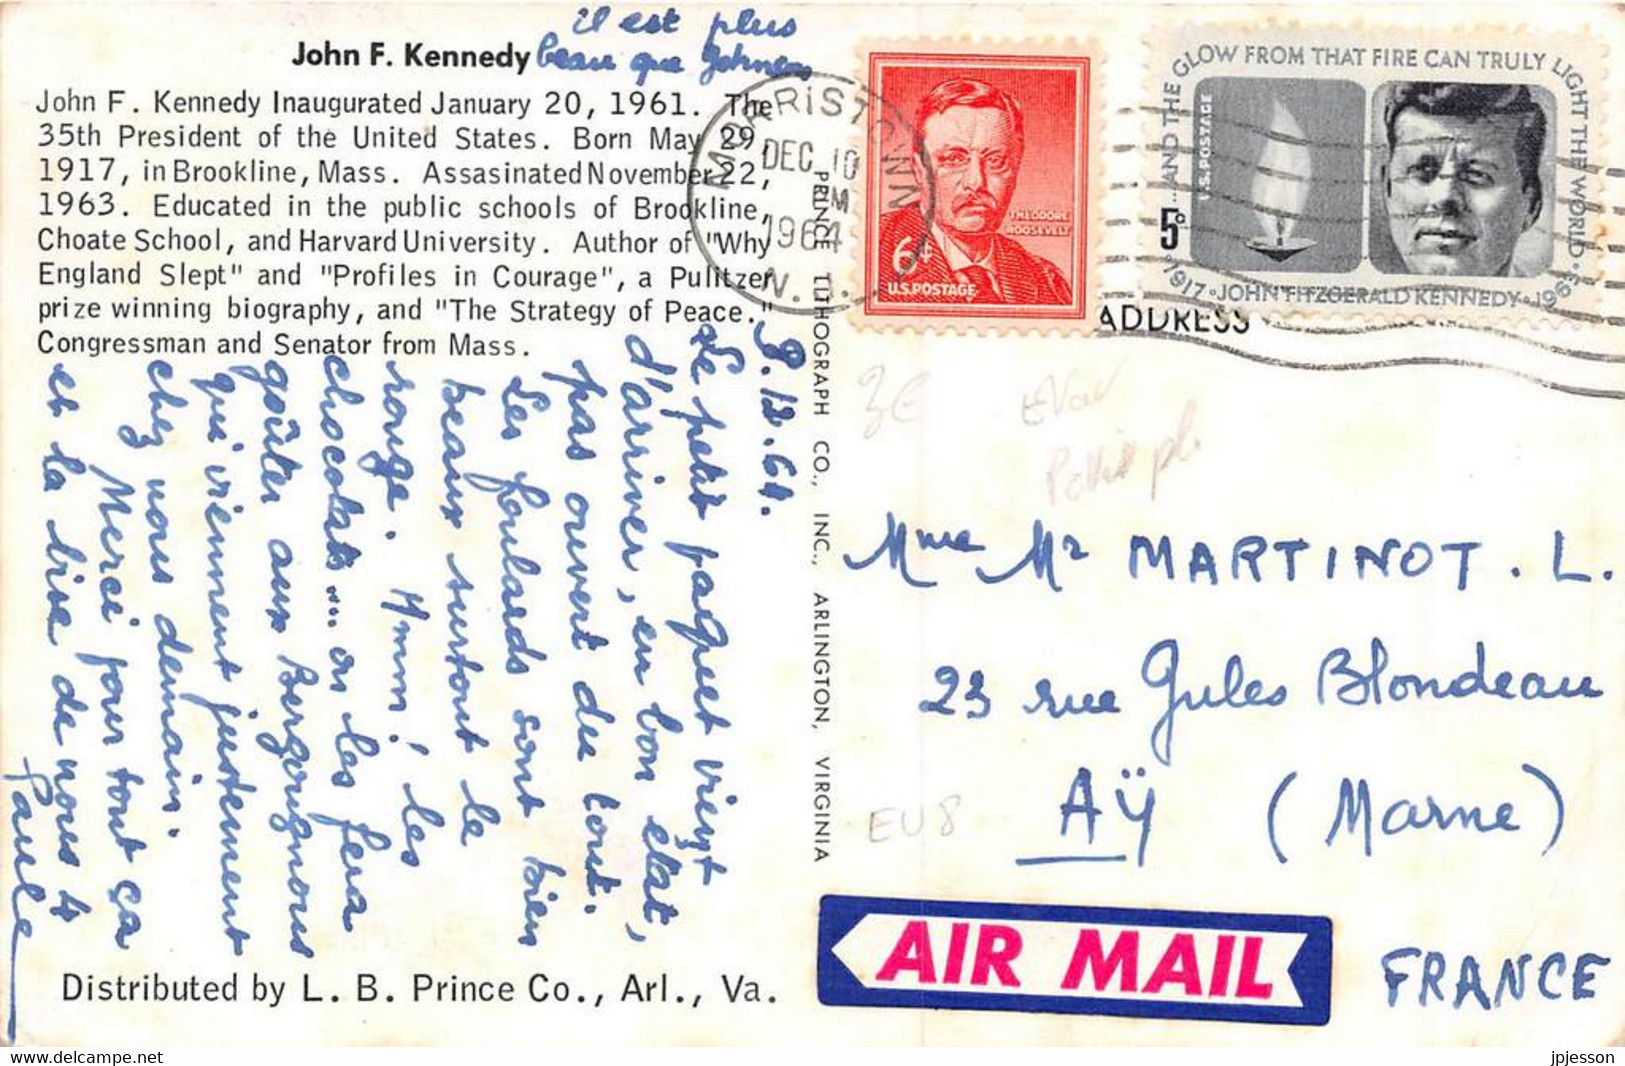 il est plus
beau que Johnson
John F. Kennedy
John F. Kennedy Inaugurated January 20, 1961. The
35th President of the United States. Born May 29,
1917, in Brookline, Mass. Assasinated November 22,
1963. Educated in the public schools of Brookline,
Choate School, and Harvard University. Author of "Why
England Slept" and "Profiles in Courage", a Pulitzer
prize winning biography, and "The Strategy of Peace."
Congressman and Senator from Mass.
8.12.64.
Le petit paquet vient
d'arriver, en bon état,
pas ouvert du tout.
Les foulards sont bien
beaux surtout le
rouge. Hmm! les
chocolats... on les fera
goûter aux Bergougnous
qui viennent justement
chez nous demain.
Merci pour tout ça
et la bise de nous 4
Paule
Distributed by L. B. Prince Co., Arl., Va.
PRINCE LITHOGRAPH CO., INC., ARLINGTON, VIRGINIA
MORRISTOWN
DEC 10
PM
1964
N.J.
THEODORE
ROOSEVELT
6¢
U.S. POSTAGE
...AND THE GLOW FROM THAT FIRE CAN TRULY LIGHT THE WORLD.
U.S. POSTAGE
5¢
1917·JOHN FITZGERALD KENNEDY·1963
ADDRESS
3€
EU8
Mme Mr MARTINOT. L.
23 rue Jules Blondeau
AŸ (Marne)
FRANCE
AIR MAIL
jpjesson
https://www.delcampe.net